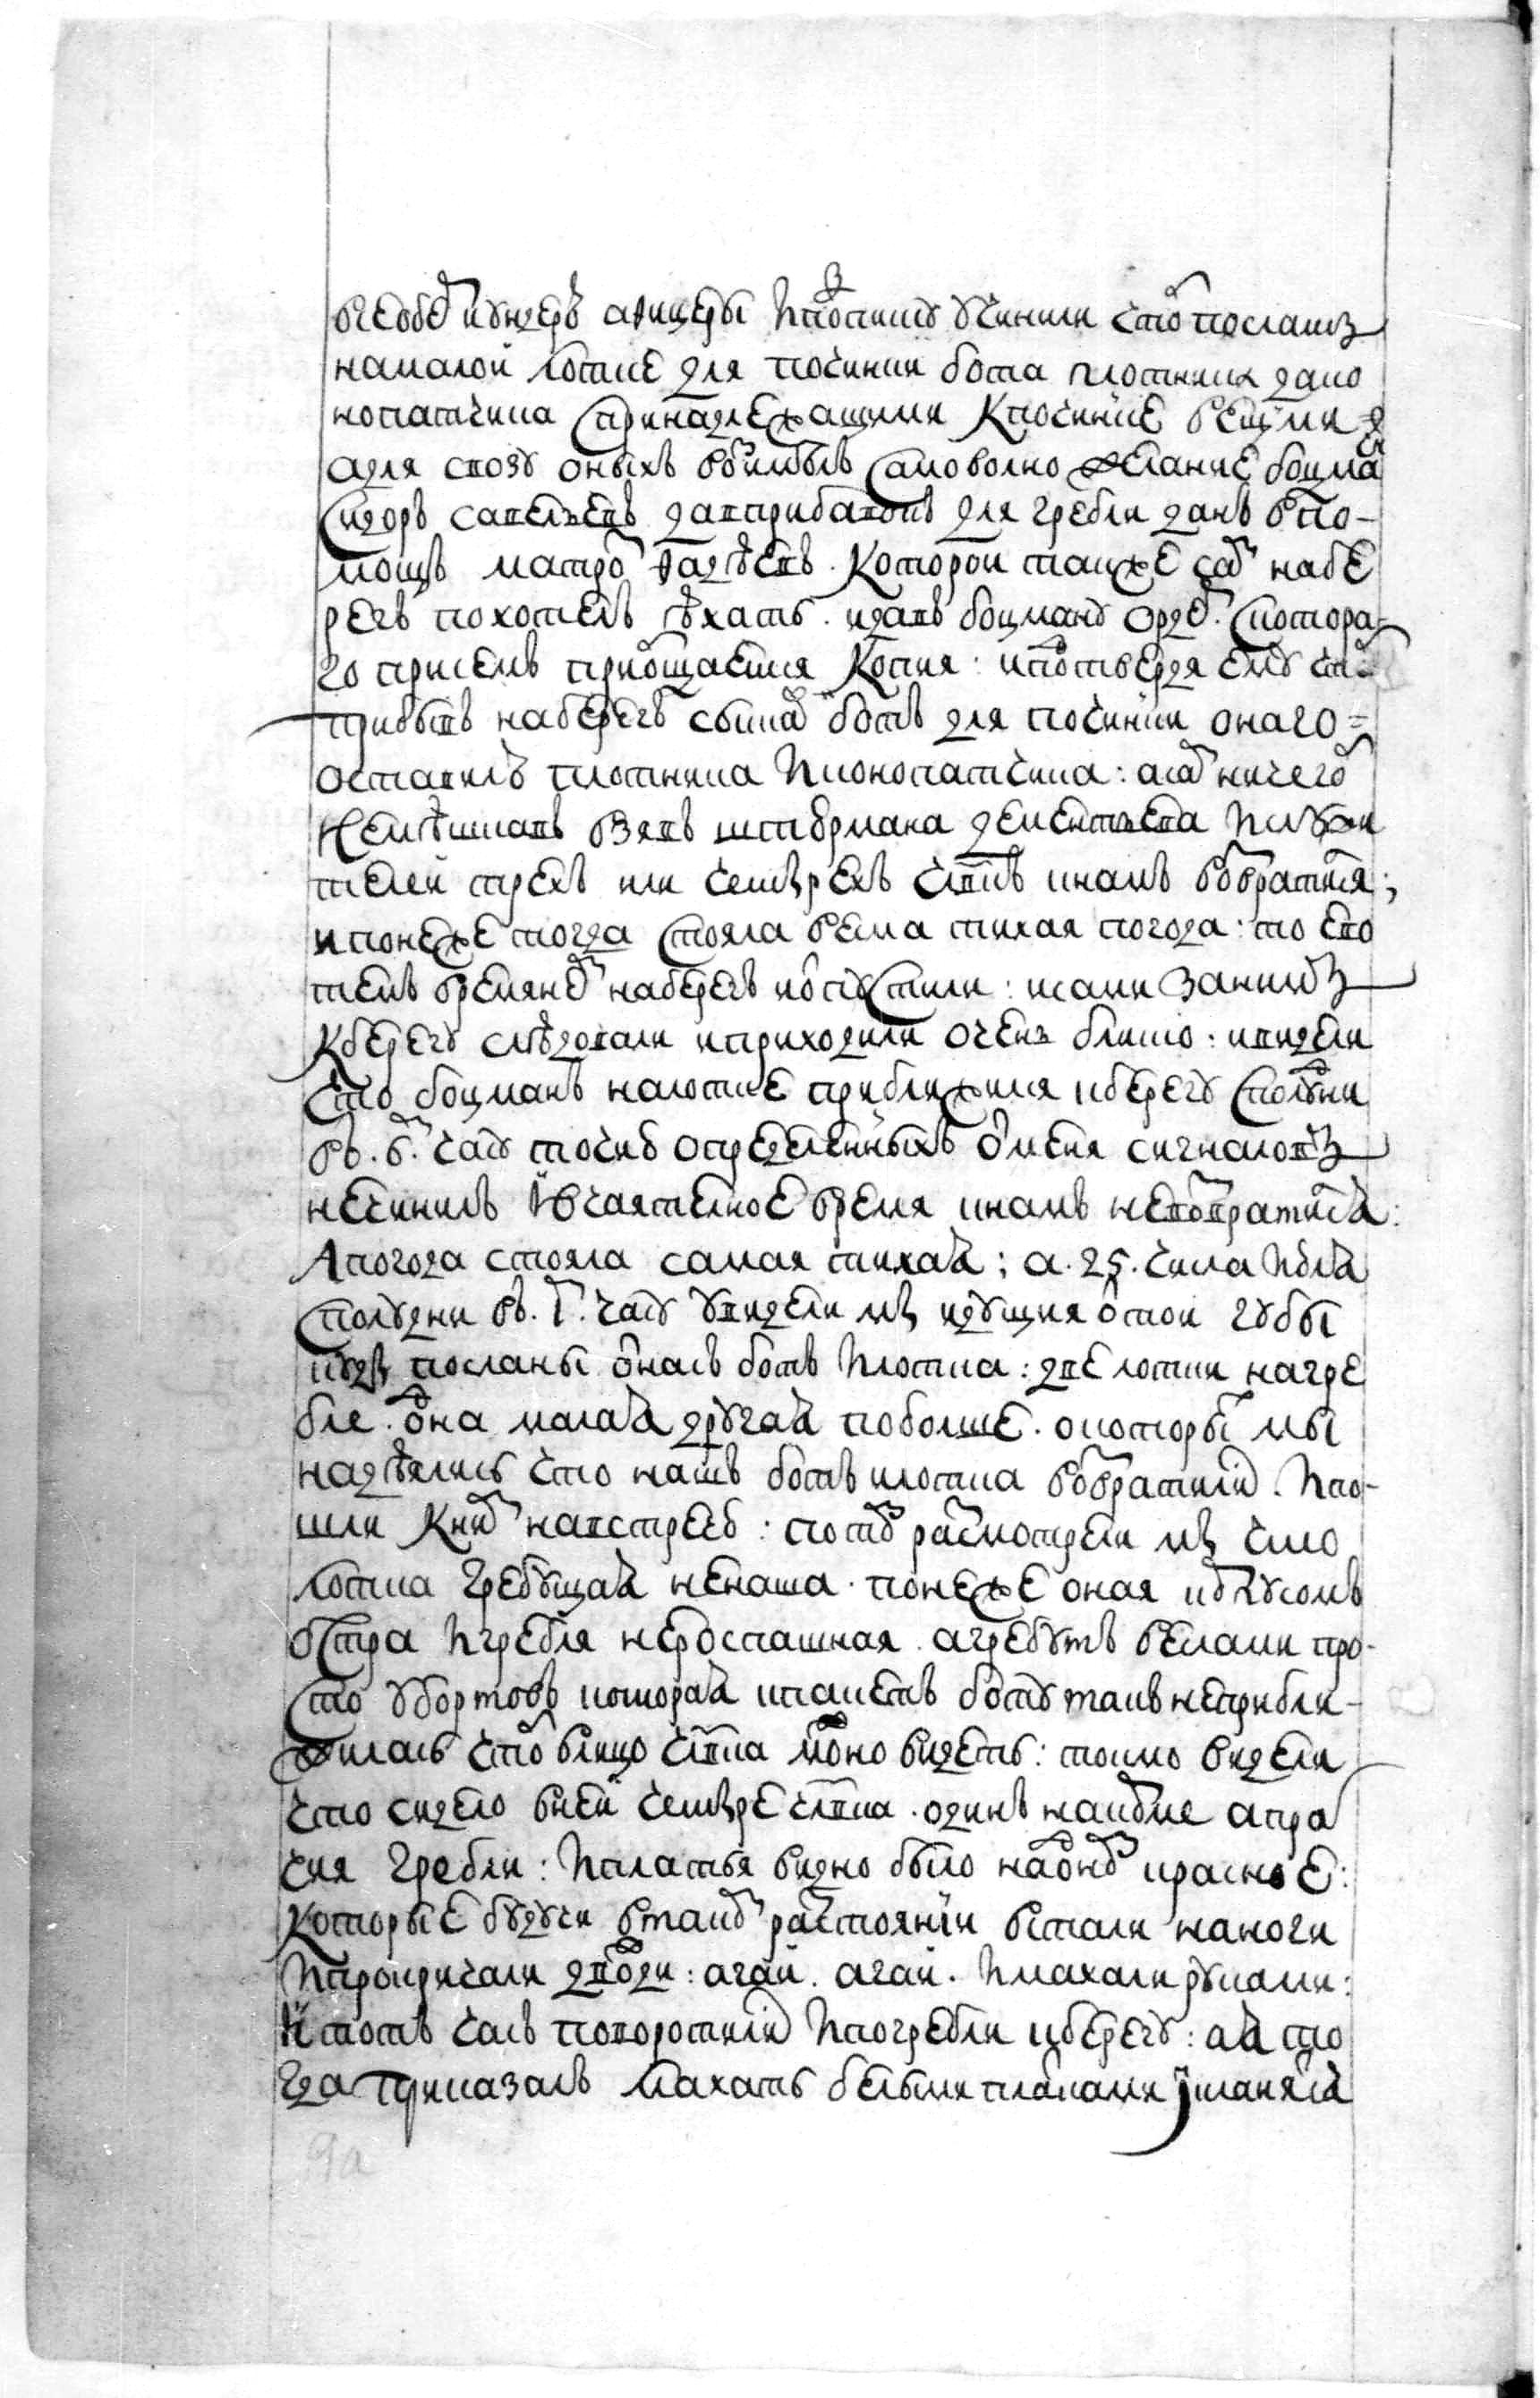 все обер и ундеръ афицеры и подписку учинили что послать
на малой лотке для починки бота плотника да ко
нопатчика с принадлежащими к починке вещми
а для свозу оныхъ возимѣлъ самоволно желание боцман
Сидоръ Савельевъ да в прибавокъ для гребли данъ в по-
мощь матроз Фадѣевъ. Которой также сам на бе
регъ похотелъ ѣхать. и давъ боцману ордер. с котора-
го при семъ приобщается копия: и подтвердя ему что
прибывъ на берегъ сыскав ботъ для починки онаго
оставилъ плотника и конопатчика: а сам ничего
не мѣшкавъ взявъ штюрмана Дементьева и служи
телей трехъ или четырехъ члвкъ к намъ возвратился;
и понеже тогда стояла велма тихая погода: то ево
темъ времянем на берегъ и отпустили: и сами за нимъ
к берегу слѣдовали и приходили очень близко: и видели
что боцманъ на лотке приближился к берегу с полудни
въ 6. часу точию определенныхъ от меня сигналовъ
не чинилъ и в чаятелное время к намъ не возвратился:
А погода стояла самая тихая; а 25. числа июля
с полудни въ 1. часу увидели мы идущия от той губы
куды посланы от насъ ботъ и лотка: две лотки на гре
бле. одна малая другая поболше. о которых мы
надѣялись что нашъ ботъ и лотка возвратились. и по-
шли к ним навстречю: потом расмотрели мы что
лотка гребущая не наша. понеже оная и корпусомъ
востра и гребля не распашная. а гребутъ веслами про-
сто у бортовъ которая к пакетъ боту такъ не прибли-
жилась чтоб в лицо члвка можно видеть: токмо видели
что сидело в ней четыре члвка. один на корме а про
чия в гребли: и платья видно было на одном красное:
которые будучи в таком растоянии встали на ноги
и прокричали дважды: агай. агай. и махали руками:
и тотъ часъ поворотились и погребли к берегу: а я то
гда приказалъ махать белыми платками и кланялся